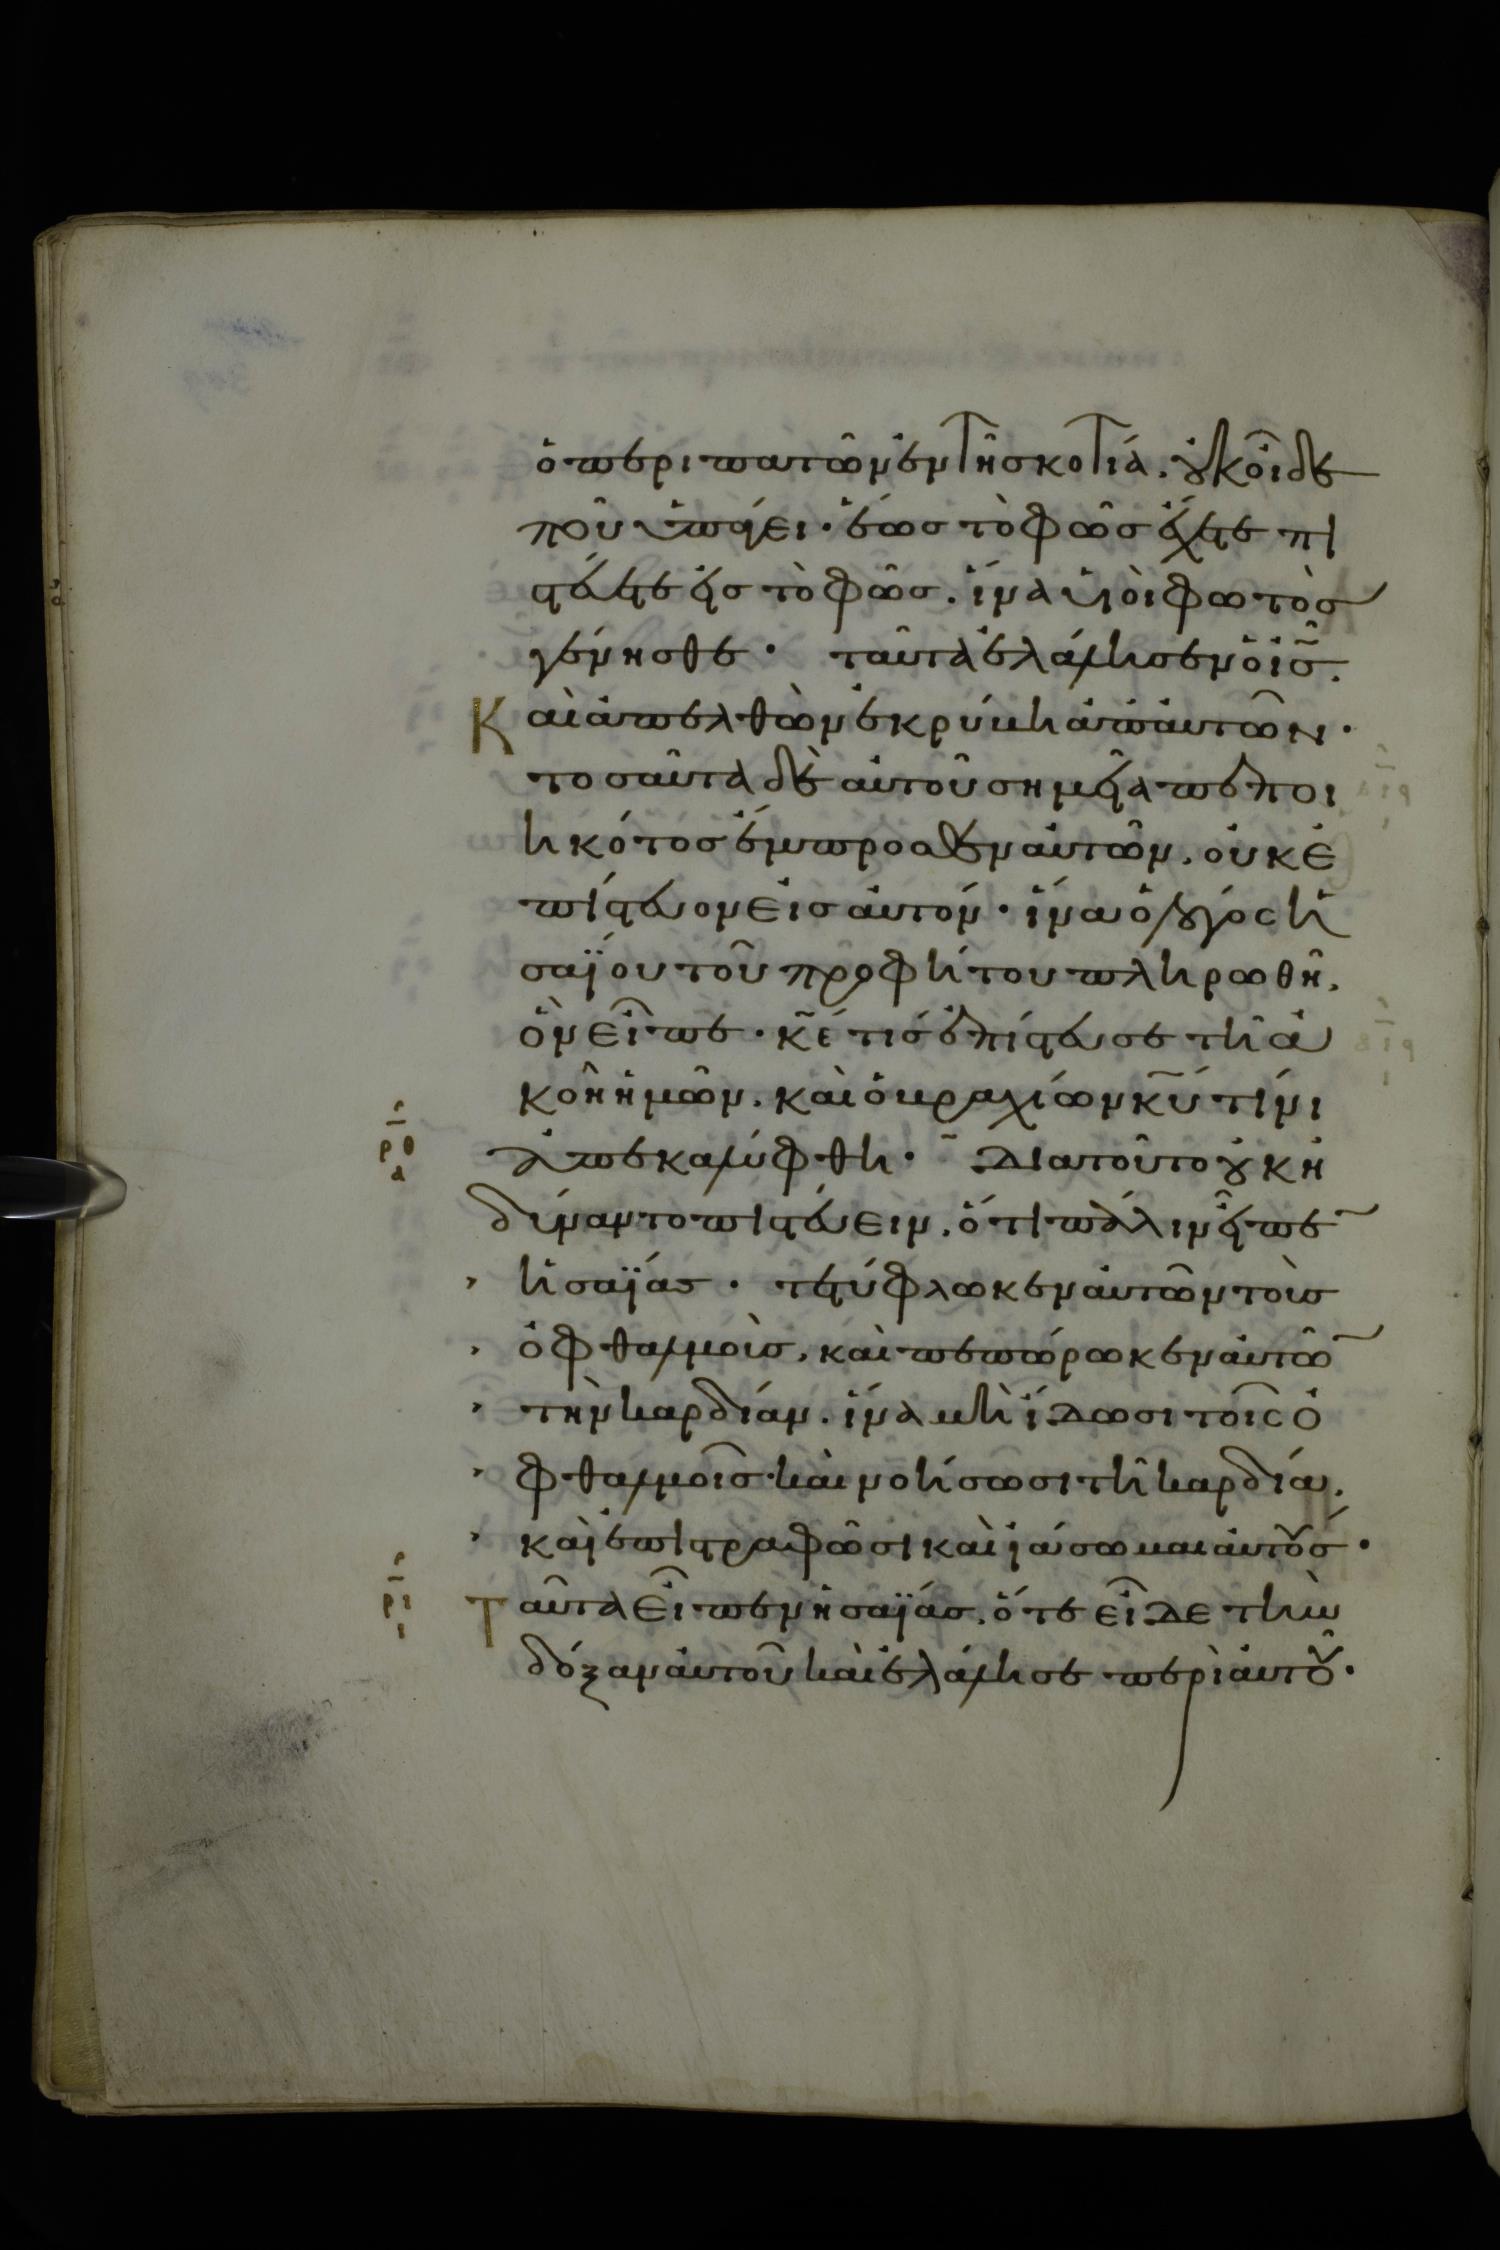 ὁ περιπατῶν ἐν τῆ σκοτιά. οὐκ οἶδε
ποῦ ὑπάγει· ἕως τὸ φῶσ ἔχετε πι
στεύετε εἰσ τὸ φῶσ. ἵνα υἱοὶ φωτὸσ
γένησθε· ταῦτα ἐλάλησεν ὁ ισ̅.
Καὶ ἀπελθὼν ἐκρύβη ἀπ' αὐτῶν·
τοσαῦτα δὲ αὐτοῦ σημεῖα πεποι
ηκότοσ ἔμπροσθεν αὐτῶν. οὐκ ἐ
πίστευον εἰσ αὐτόν· ἵνα ὁ λόγοσ ἡ
σαΐου τοῦ προφήτου πληρωθῆ.
ὃν εἶπε· κ̅ε̅ τίσ ἐπίστευσε τῆ ἀ
κοῆ ἡμῶν. καὶ ὁ βραχίων κ̅υ̅ τίνι
ἀπεκαλύφθη· Διατοῦτο οὐκ ἠ
ρο̅θ
α
δύναντο πιστεύειν. ὅτι πάλιν εἶπε̅
ἡσαΐασ· τετύφλωκεν αὐτῶν τοὺσ
ὀφθαλμοὺσ. καὶ πεπώρωκεν αὐτῶ̅
τὴν καρδίαν. ἵνα μὴ ἴδωσι τοῖσ ὀ
φθαλμοῖσ· καὶ νοήσωσι τῆ καρδία.
καὶ ἐπιστραφῶσι καὶ ἰάσωμαι αὐτούσ·
Ταῦτα εἶπεν ἡσαΐασ. ὅτε εἶδε τὴν
ρι̅
ι
δόξαν αὐτοῦ καὶ ἐλάλησε περὶ αὐτοῦ·